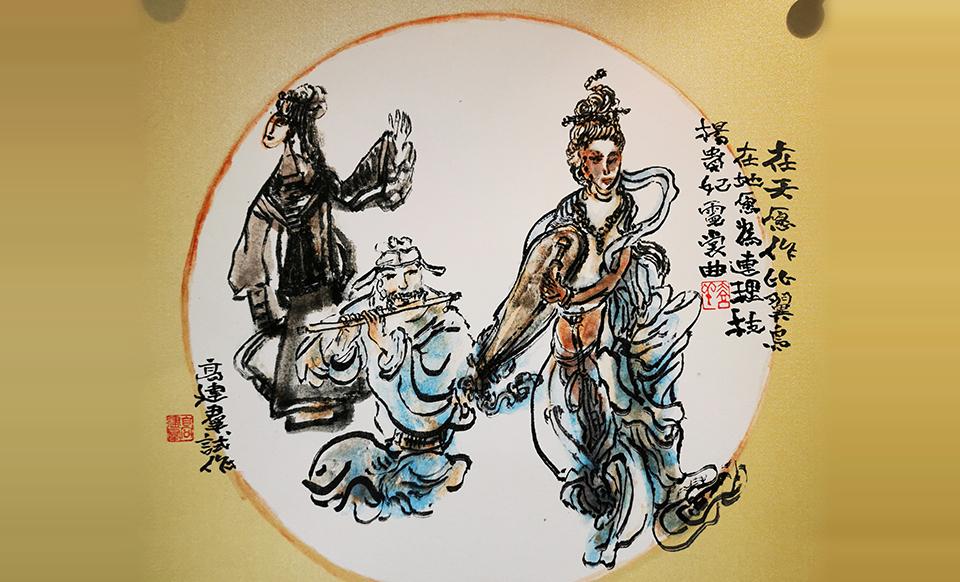 在天愿作比翼鸟
在地愿为連理枝
楊貴妃霓裳曲
高建群試作